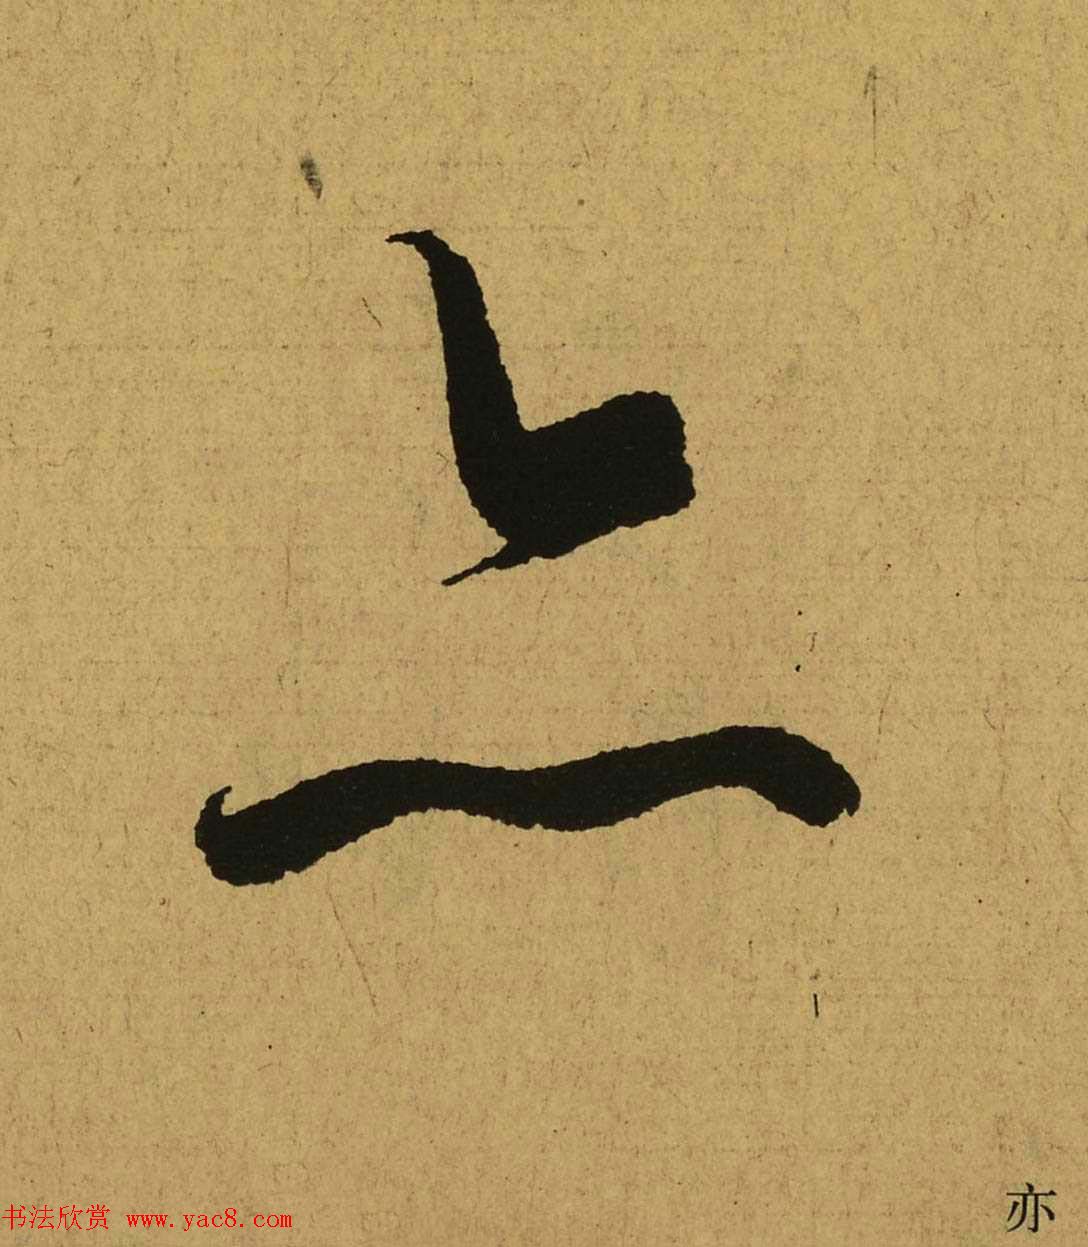 亦
亦
书法欣赏 www.yac8.com